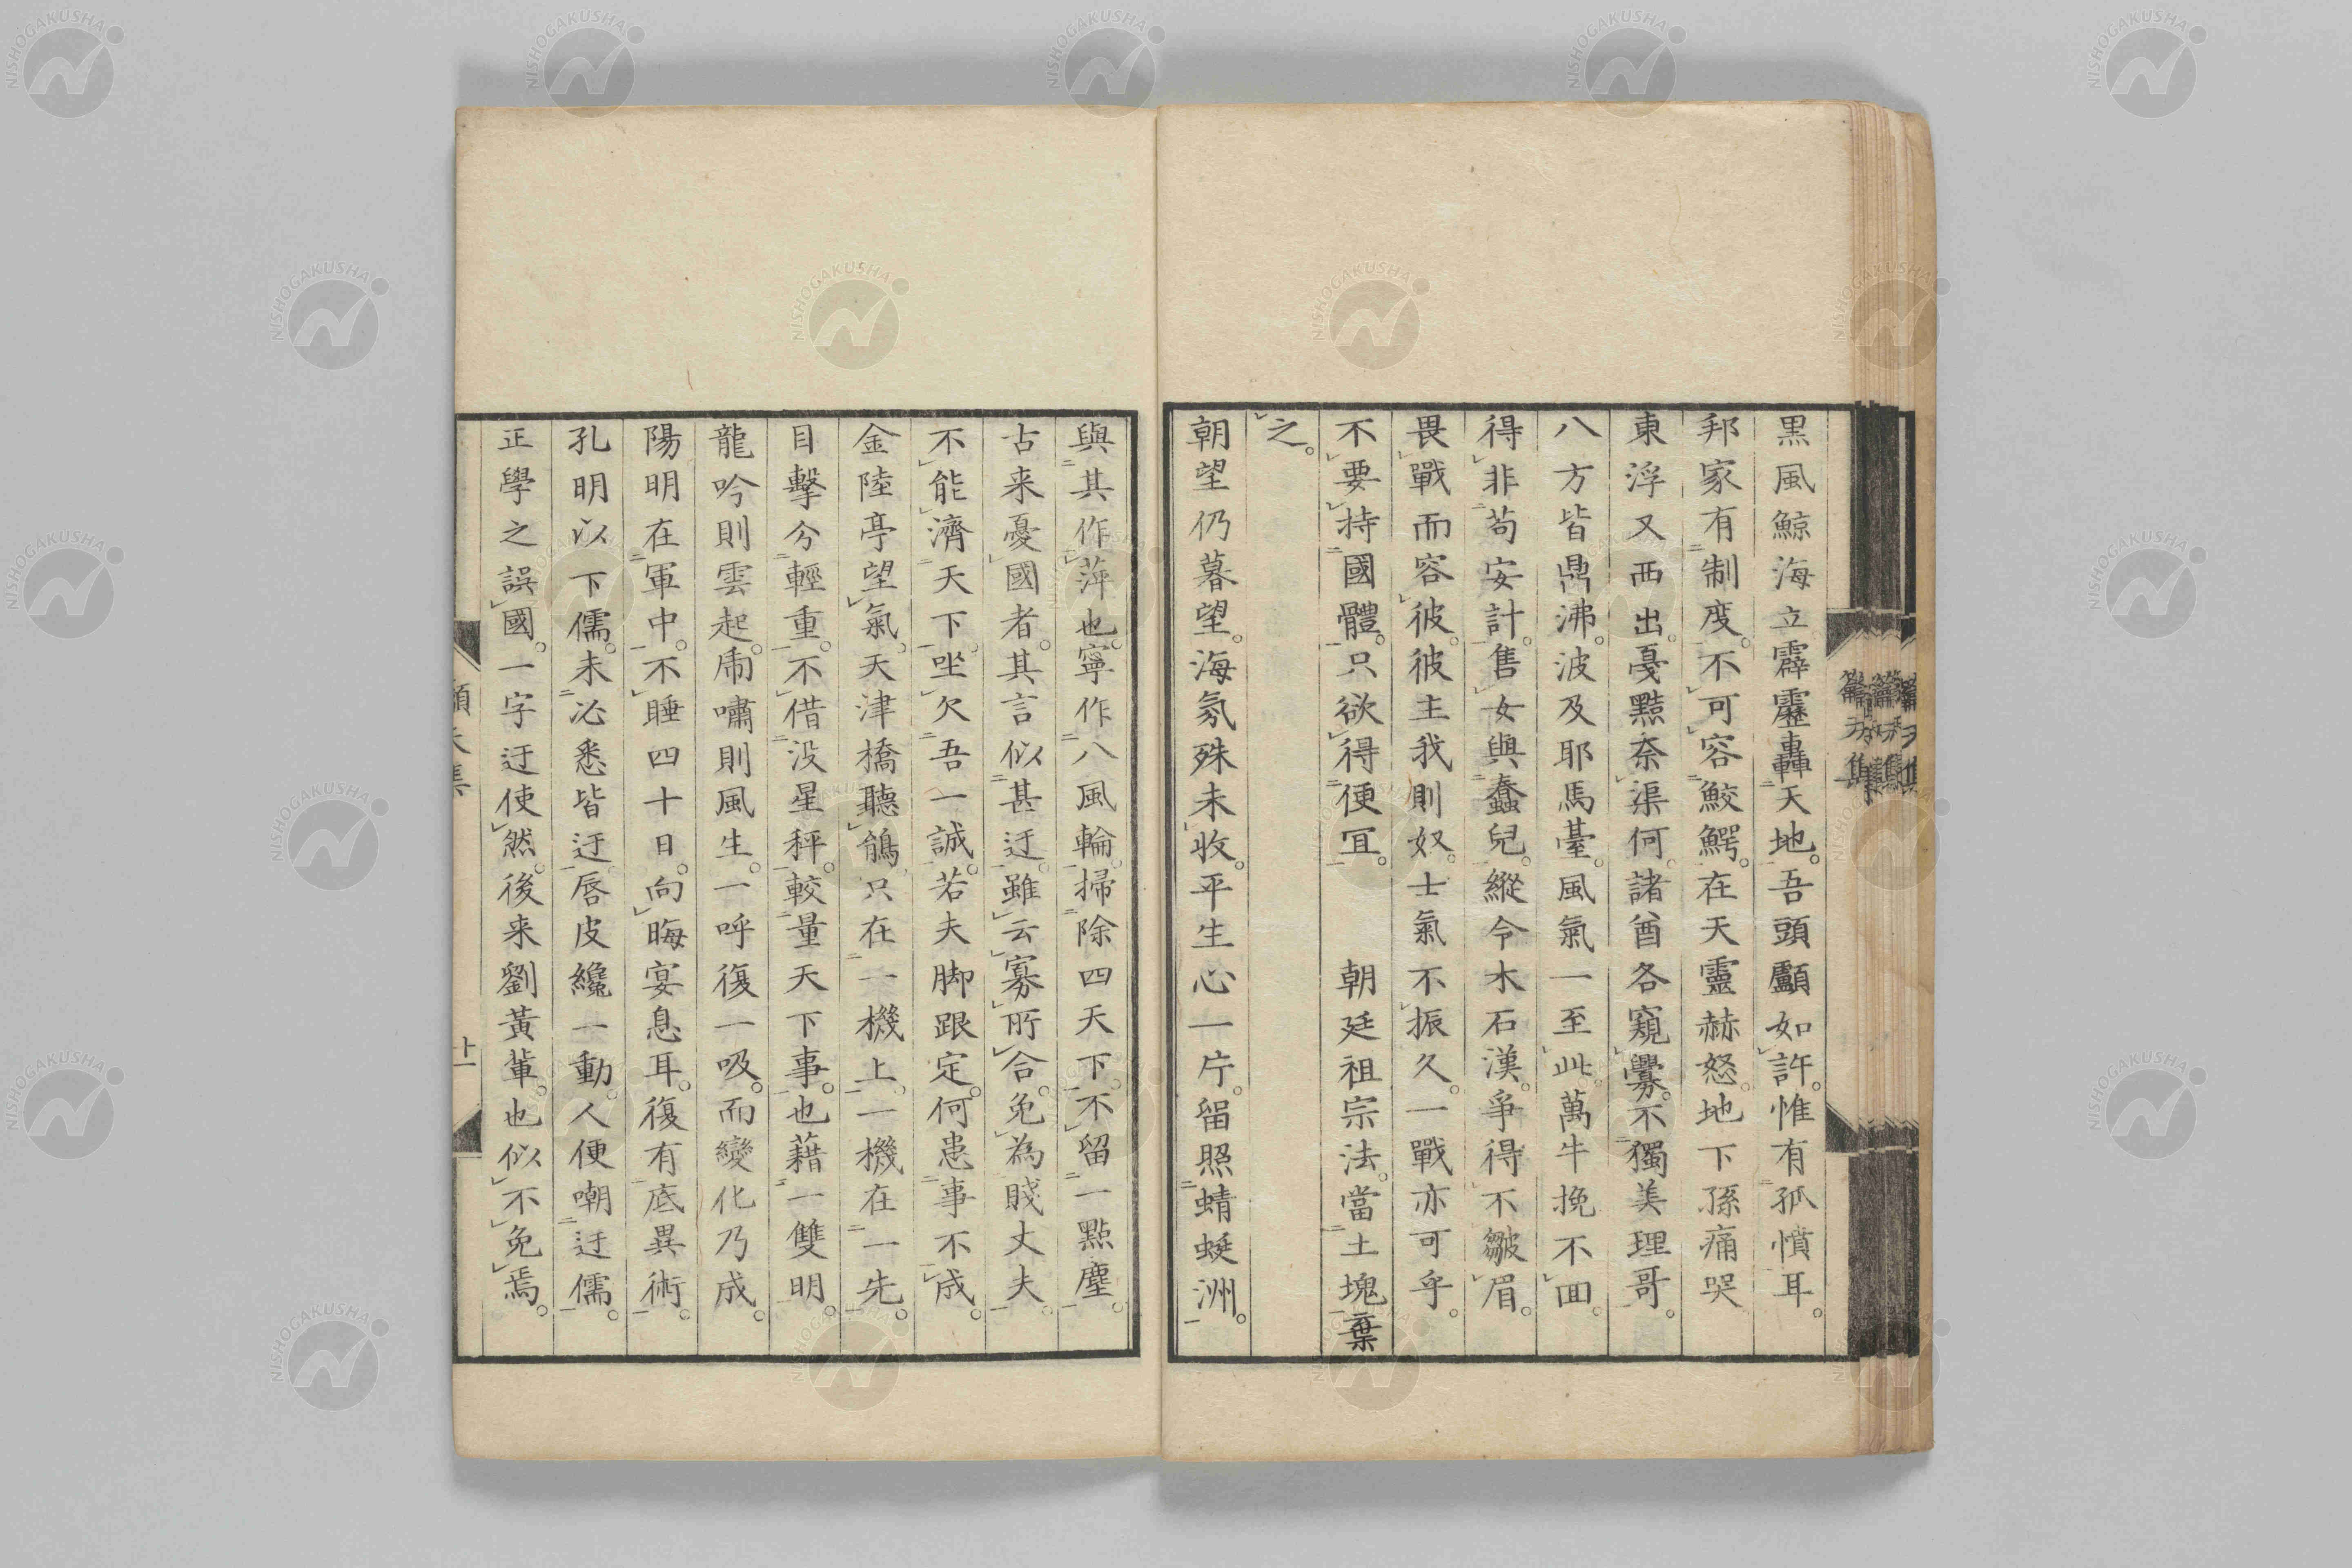 黒風鯨海立霹靂轟天地。吾頭顱如許。惟有孤憤耳。
邦家有制度。不可容鮫鰐。在天靈赫怒。地下孫痛哭
東浮又西出。憂黠奈渠何。諸酋各窺釁。不獨美理哥。
八方皆鼎沸。波及耶馬臺。風氣一至此。萬牛挽不回。
得非苟安計。售女與蠢兒。縱令木石漢。爭得不皺眉。
畏戰而容彼。彼主我則奴。士氣不振久。一戰亦可乎。
不要持國體。只欲得便冝。 朝廷祖宗法。當土塊棄
之。
朝望仍暮望。海氛殊未收。平生心一片。留照蜻蜓洲。
與其作萍也。寧作八風輪。掃除四天下。不留一點塵。
古来憂國者。其言似甚迂。雖云寡所合。免為賤丈夫。
不能濟天下。坐欠吾一誠。若夫脚跟定。何患事不成。
金陸亭望氣。天津橋聽鵤。只在一機上。一機在一先。
目擊分輕重。不借没星秤。較量天下事。也藉一雙明。
龍吟則雲起。虎嘯則風生。一呼復一吸。而變化乃成。
陽明在軍中。不睡四十日。向晦宴息耳。復有底異術。
孔明以下儒。未必悉皆迂。唇皮纔一動。人便嘲迂儒。
正學之誤國。一字迂使然。後来劉黃輩。也似不免焉。
廿一
NISHOGAKUSHA